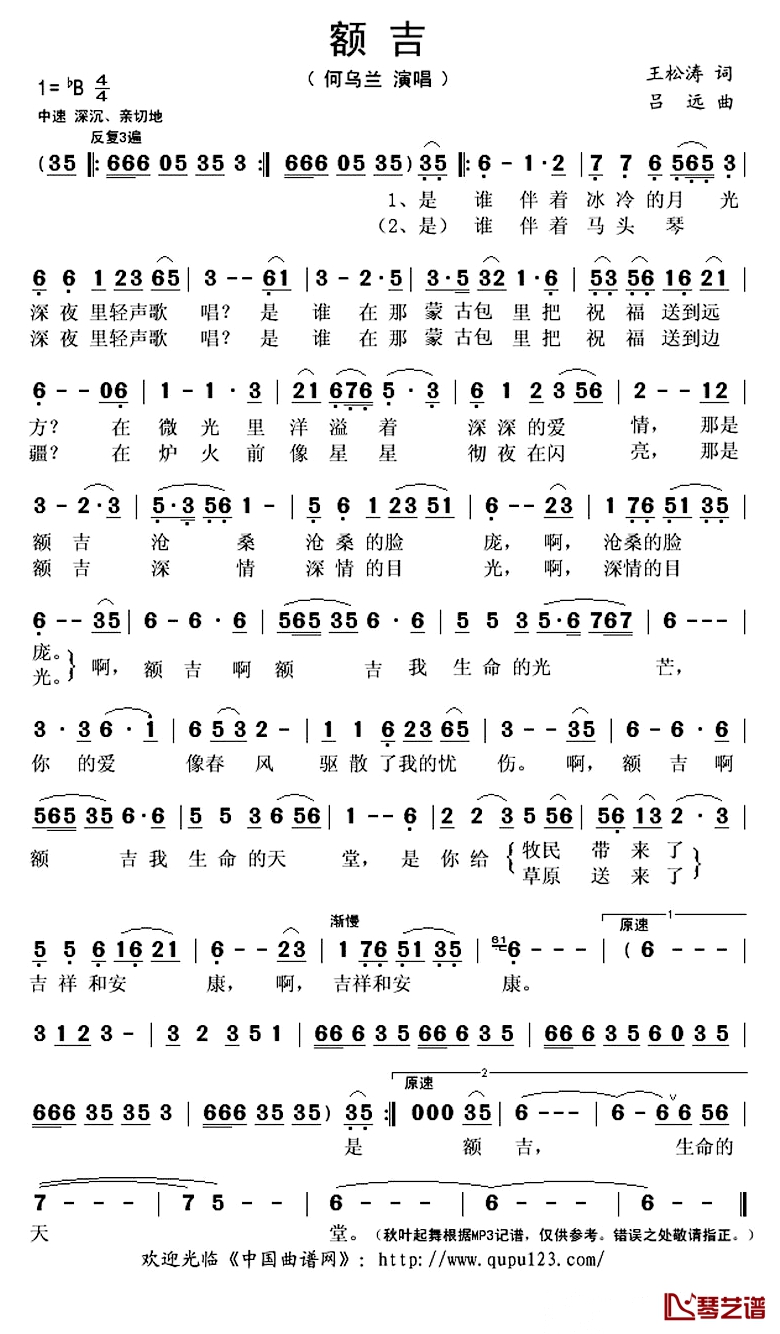 额 吉
（ 何乌兰 演唱 ）
王松涛 词
吕 远 曲
1= ♭B 4/4
中速 深沉、亲切地
反复3遍
( 35 ‖: 666 05 35 3 :‖ 666 05 35 ) 35 ‖: 6 - 1·2 | 7 7 6 565 3 |
1、是 谁 伴 着 冰 冷 的 月 光
（2、是） 谁 伴 着 马 头 琴
6 6 1 23 65 | 3 - - 61 | 3 - 2·5 | 3·5 32 1·6 | 53 56 16 21 |
深 夜 里轻声歌 唱？ 是 谁 在 那 蒙 古包 里 把 祝 福 送到远
深 夜 里轻声歌 唱？ 是 谁 在 那 蒙 古包 里 把 祝 福 送到边
6 - - 06 | 1 - 1 · 3 | 21 676 5 · 3 | 6 1 2 3 56 | 2 - - 12 |
方？ 在 微 光 里 洋 溢 着 深 深 的 爱 情， 那是
疆？ 在 炉 火 前 像 星 星 彻 夜 在 闪 亮， 那是
3 - 2·3 | 5·3 56 1 - | 5 6 1 23 51 | 6 - - 23 | 1 76 51 35 |
额 吉 沧 桑 沧 桑 的 脸 庞， 啊， 沧桑的脸
额 吉 深 情 深 情 的 目 光， 啊， 深情的目
6 - - 35 | 6 - 6 · 6 | 565 35 6 · 6 | 5 5 3 5·6 767 | 6 - - - |
庞。 啊， 额 吉 啊 额 吉 我 生 命 的 光 芒，
光。
3 · 3 6 · 1 | 6 53 2 - | 1 1 6 23 65 | 3 - - 35 | 6 - 6 · 6 |
你 的 爱 像春 风 驱 散 了我的忧 伤。 啊， 额 吉 啊
565 35 6·6 | 5 5 3 6 56 | 1 - - 6 | 2 2 3 5 56 | 56 13 2 · 3 |
额 吉 我 生 命 的 天 堂， 是 你 给 牧民 带 来 了
草原 送 来 了
渐慢
原速 1
5 5 6 16 21 | 6 - - 23 | 1 76 51 35 | 61 6 - - | ( 6 - - |
吉 祥 和安 康， 啊， 吉祥和安 康。
3 1 2 3 - | 3 2 3 5 1 | 66 6 3 5 66 6 3 5 | 66 6 3 5 6 0 3 5 |
原速 2
666 35 35 3 | 666 35 35 ) 35 :‖ 000 35 | 6 - - - | 6 - 6 6 56 |
是 额 吉， 生命的
7 - - - | 7 5 - - | 6 - - - | 6 - - - ‖
天 堂。（秋叶起舞根据MP3记谱，仅供参考。错误之处敬请指正。）
欢迎光临《中国曲谱网》：http://www.qupu123.com/
琴艺谱